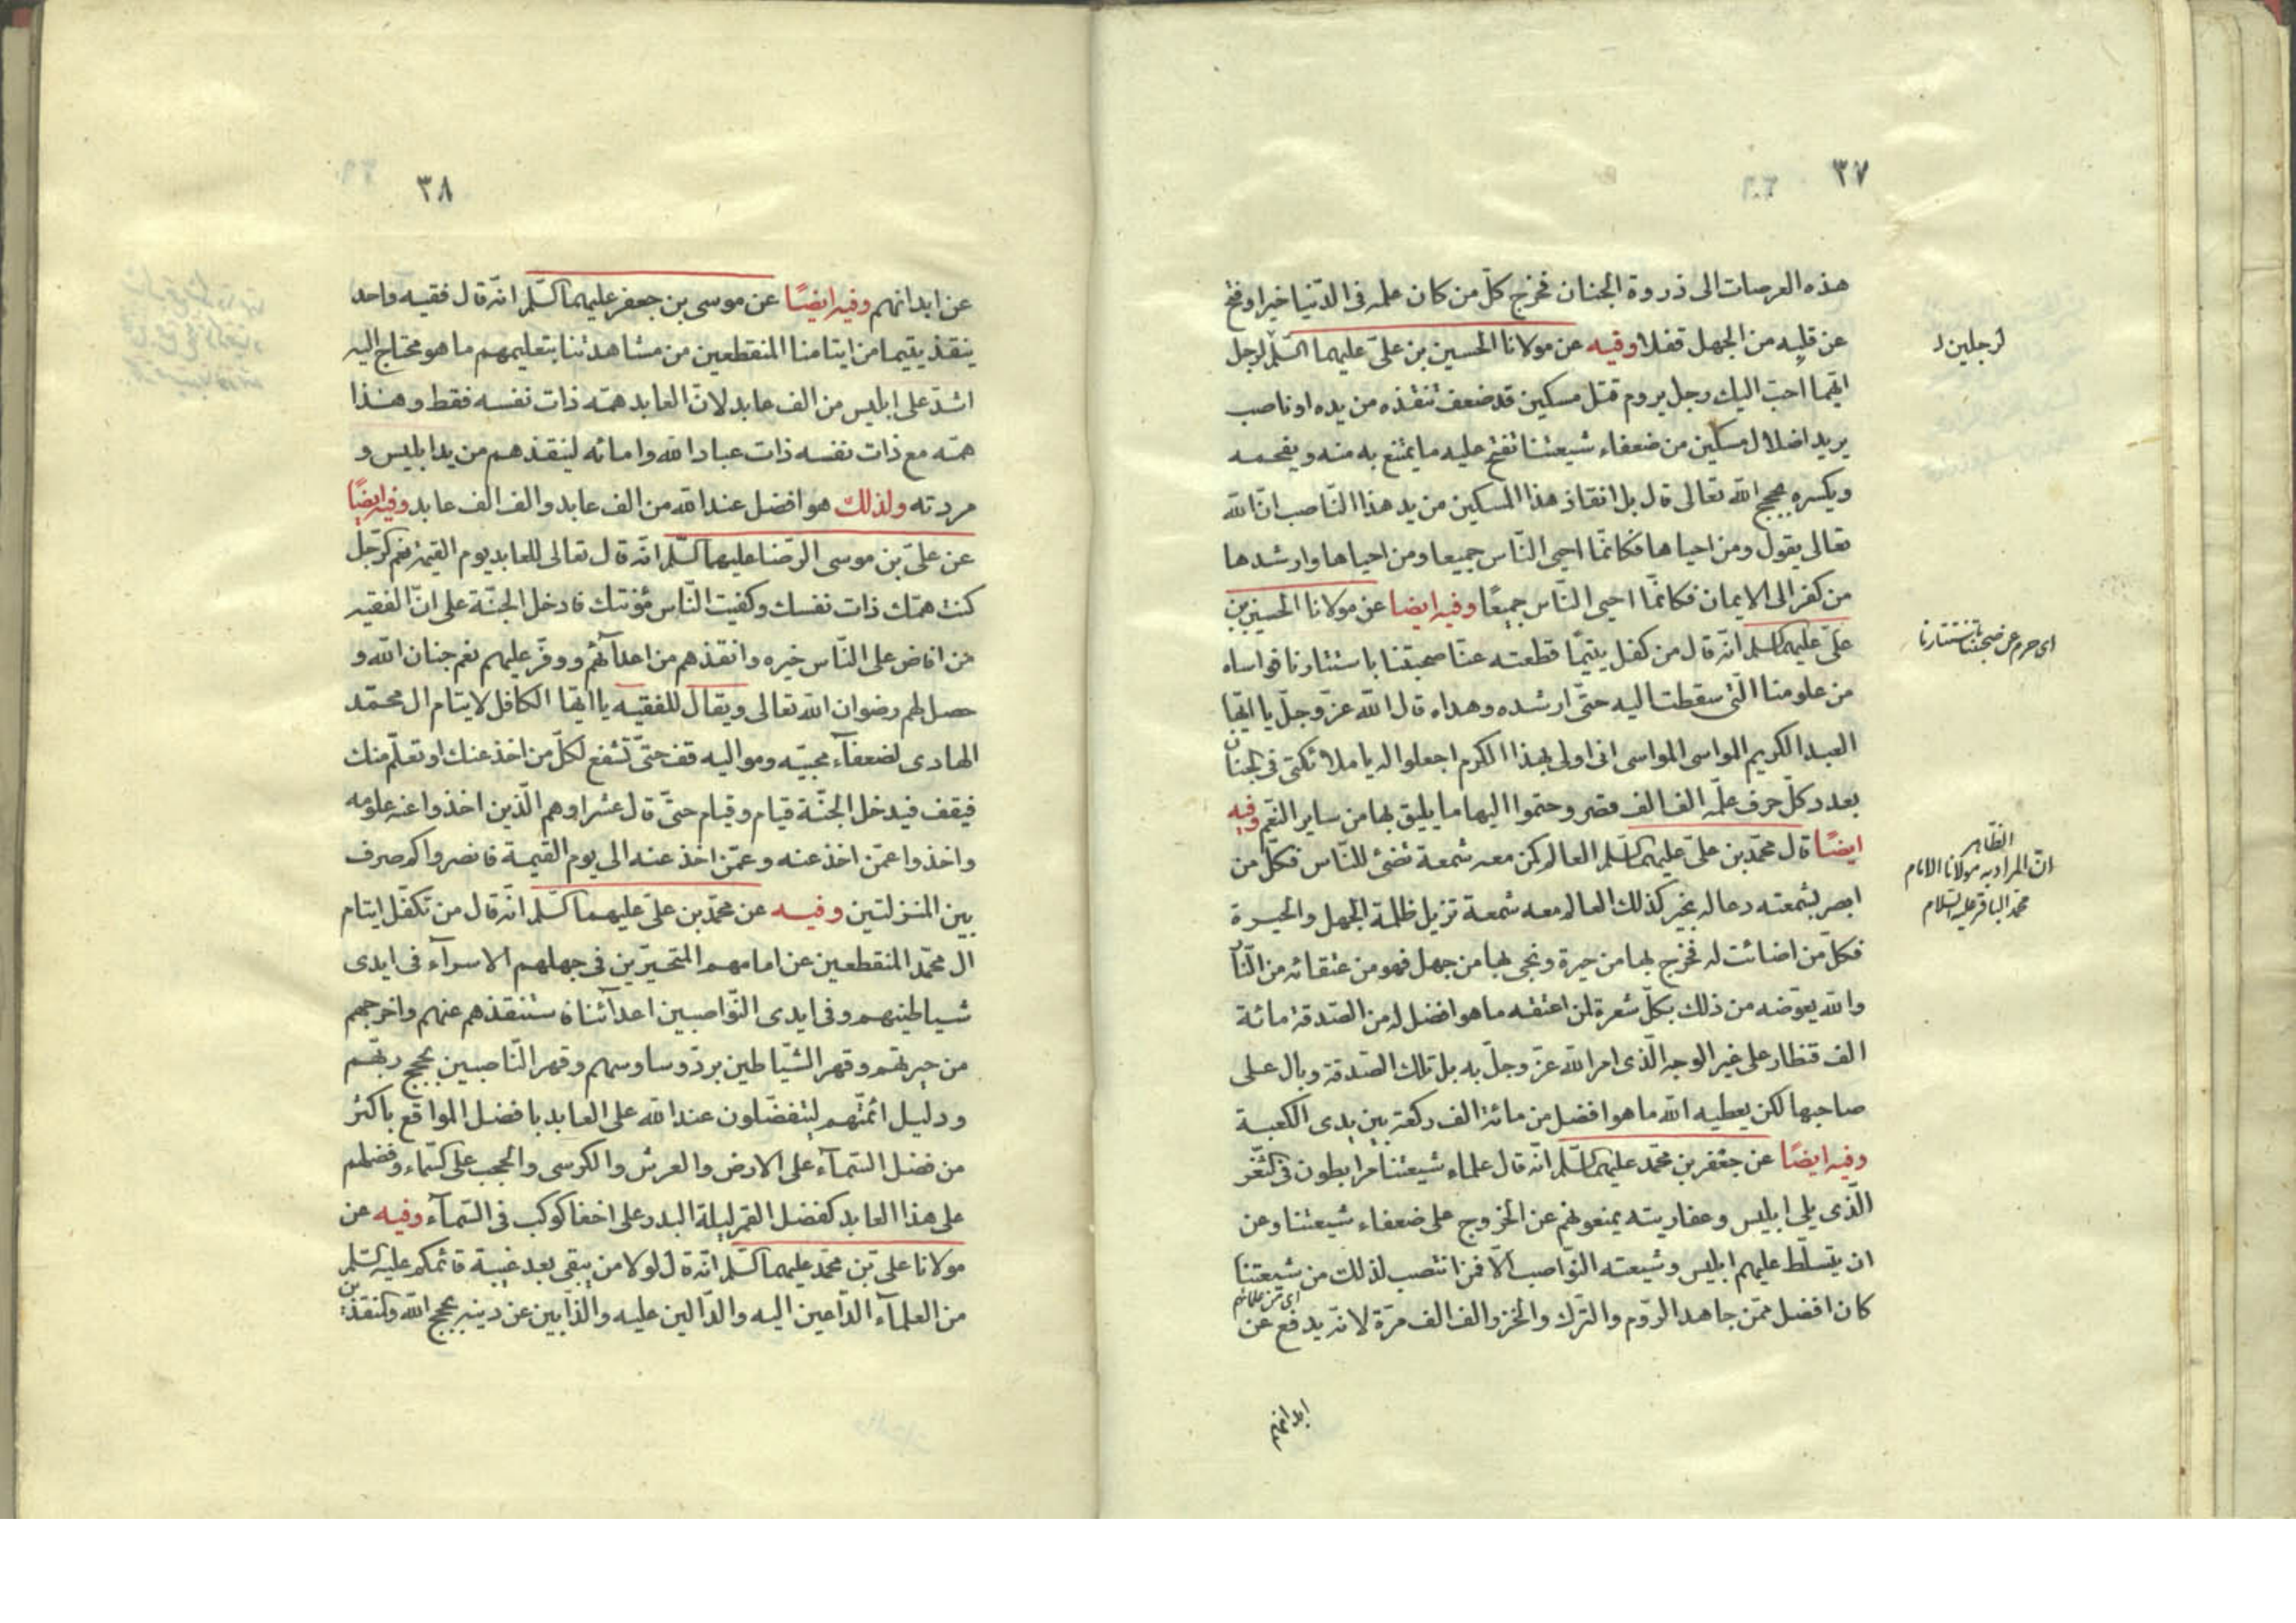 ٣٧
هذه العرصات الى ذروة الجنان فخرج كلّ من كان علمه فى الدّنيا خيرا و فتح
عن قلبه من الجهل قفلا وفيه عن مولانا الحسين بن علىّ عليهما السّلم لرجل
لرجلين
ايّهما احبّ اليك رجل يروم قتل مسكين قد ضعف تنقذه من يده او ناصب
يريد اضلال مسكين من ضعفاء شيعتنا تفتح عليه ما يمتنع به منه و يفحمه
ويكسره بحجج الله تعالى قال بل انقاذ هذا المسكين من يد هذا النّاصب انّ الله
تعالى يقول ومن احياها فكانمّا احيى النّاس جميعا ومن احياها وارشدها
من كفر الى الايمان فكانمّا احيى النّاس جميعًا وفيه ايضا عن مولانا الحسين بن
علىّ عليهما السلم انّه قال من كفل يتيمًا قطعته عنّا محبتنا باستتارنا فواساه
من علومنا الّتى سقطت اليه حتّى ارشده وهداه قال الله عزّ وجلّ يا ايّها
العبد الكريم المواسى المواسى انى اولى بهذا الكرم اجعلوا له يا ملائكتى فى الجنان
بعدد كلّ حرف علّمه الف الف قصر وحتموا اليها ما يليق بها من ساير النّعم وفيه
ايضًا قال محمّد بن علىّ عليهما السّلم العالم كمن معه شمعة تضئ للنّاس فكلّ من
الظّاهر
انّ المراد به مولانا الامام
محمّد الباقر عليه السّلام
ابصر بشمعته دعا له بخير كذلك العالم معه شمعة تزيل ظلمة الجهل والحيرة
فكلّ من اضائت له فخرج بها من حيرة ونجى بها من جهل فهو من عتقائه من النّار
والله يعوّضه من ذلك بكلّ شعرة لمن اعتقه ما هو افضل له من الصّدقة مائة
الف قنطار على غير الوجه الّذى امر الله عزّ وجلّ به بل تلك الصّدقة وبال على
صاحبها لكن يعطيه الله ما هو افضل من مائة الف ركعة بين يدى الكعبة
وفيه ايضًا عن جعفر بن محمّد عليهما السّلم انّه قال علماء شيعتنا مرابطون فى الثّغر
الّذى يلى ابليس وعفاريته يمنعونهم عن الخروج على ضعفاء شيعتنا وعن
ان يتسلّط عليهم ابليس وشيعته النّواصب الّا فمن انتصب لذلك من شيعتنا
كان افضل ممّن جاهد الرّوم والتّرك والخزر الف الف مرّة لانّه يدفع عن
ابدانهم
٣٨
عن ابدانهم وفيه ايضًا عن موسى بن جعفر عليهما السّلم انّه قال فقيه واحد
ينقذ يتيما من ايتامنا المنقطعين من مشاهدتنا بتعليمهم ما هو محتاج اليه
اشدّ على ابليس من الف عابد لانّ العابد همّه ذات نفسه فقط وهذا
همّه مع ذات نفسه ذات عباد الله وامائه لينقذهم من يد ابليس و
مردته ولذلك هو افضل عند الله من الف عابد والف الف عابد وفيه ايضًا
عن علىّ بن موسى الرّضا عليهما السّلم انّه قال تعالى للعابد يوم القيمة نعم الرّجل
كنت همّتك ذات نفسك وكفيت النّاس مؤنتك فادخل الجنّة على انّ الفقيه
من افاض على النّاس خيره وانقذهم من اعدآئهم ووفّر عليهم نعم جنان الله و
حصل لهم رضوان الله تعالى ويقال للفقيه يا ايّها الكافل لايتام ال محمّد
الهادى لضعفآء محبّيه ومواليه قف حتّى تشفع لكلّ من اخذ عنك او تعلّم منك
فيقف فيدخل الجنّة قيام وقيام حتّى قال عشرا وهم الّذين اخذوا عنه علومه
واخذوا عمّن اخذ عنه وعمّن اخذ عنه الى يوم القيمة فانصروا كم صرف
بين المنزلتين وفيه عن محمّد بن علىّ عليهما السّلم انّه قال من تكفّل ايتام
ال محمّد المنقطعين عن امامهم المتحيّرين فى جهلهم الاسرآء فى ايدى
شياطينهم وفى ايدى النّواصبين اعدآئنا فاستنقذهم عنهم واخرجهم
من حيرتهم وقهر الشّياطين بردّ وساوسهم وقهر النّاصبين بحجج ربّهم
ودليل ائمّتهم ليتفضّلون عند الله على العابد بافضل المواقع باكثر
من فضل السّمآء على الارض والعرش والكرسى والحجب على السّماء وفضلهم
على هذا العابد كفضل القمر ليلة البدر على اخفا كوكب فى السّمآء وفيه عن
مولانا علىّ بن محمّد عليهما السّلم انّه قال لولا من يبقى بعد غيبة قائمكم عليه السّلم
من العلمآء الدّاعين اليه والدّالين عليه والذّابين عن دينه بحجج الله والمنقذين